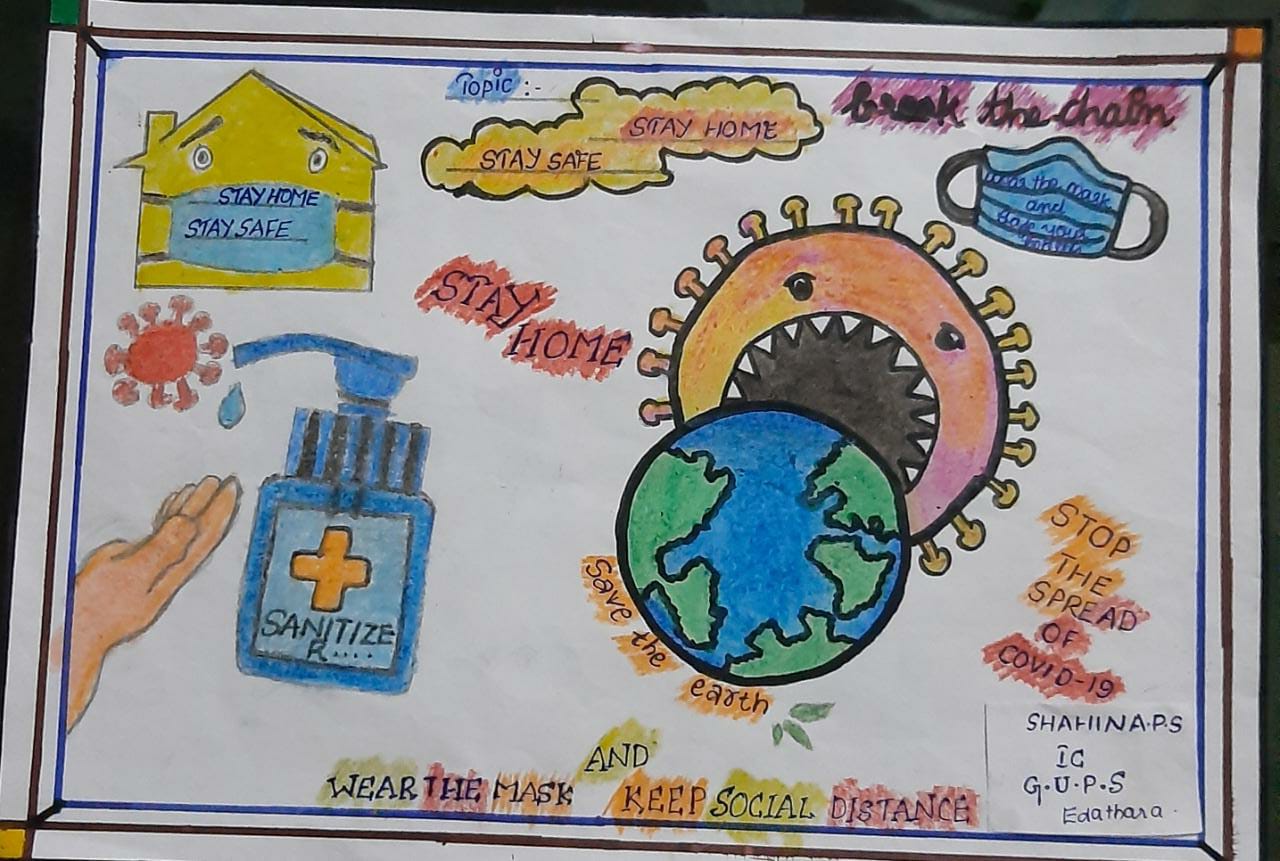 Topic :-
STAY HOME
STAY SAFE
break the chain
STAY HOME
STAY SAFE
wear the mask
and
Safe your
STAY
HOME
SANITIZE
R....
Save the earth
STOP
THE
SPREAD
OF
COVID-19
AND
WEAR THE MASK KEEP SOCIAL DISTANCE
SHAHINA.P.S
IC
G.U.P.S
Edathara.